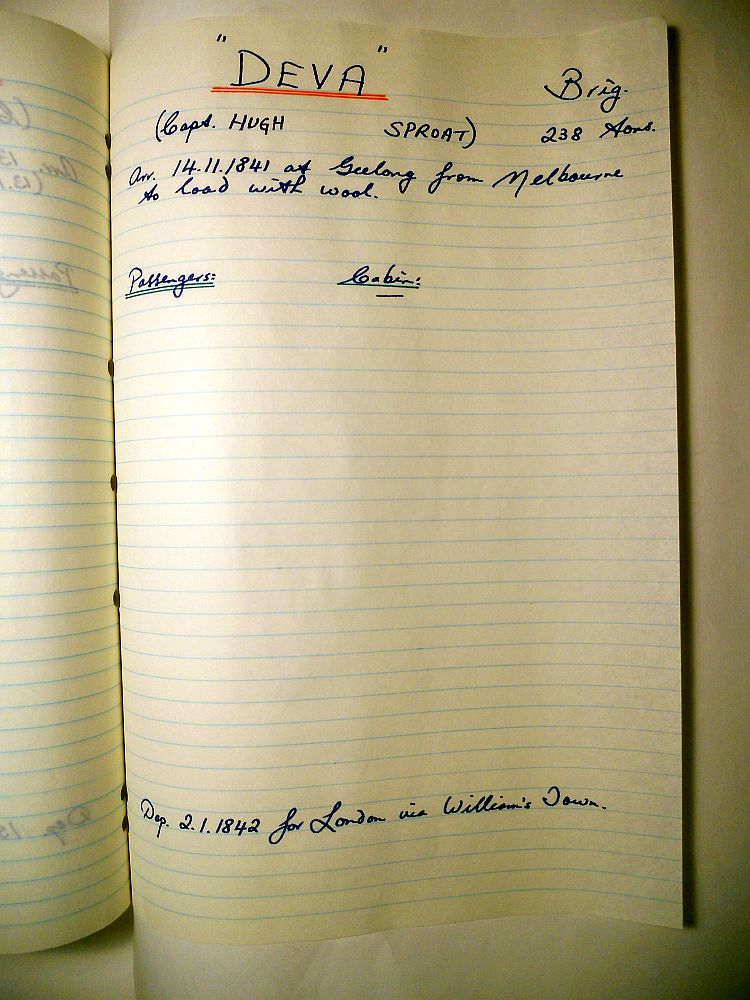 "DEVA"
Brig.
(Capt. HUGH SPROAT) 238 tons.
Arr. 14.11.1841 at Geelong from Melbourne
to load with wool.
Passengers: Cabin:
Dep. 2.1.1842 for London via William's Town.